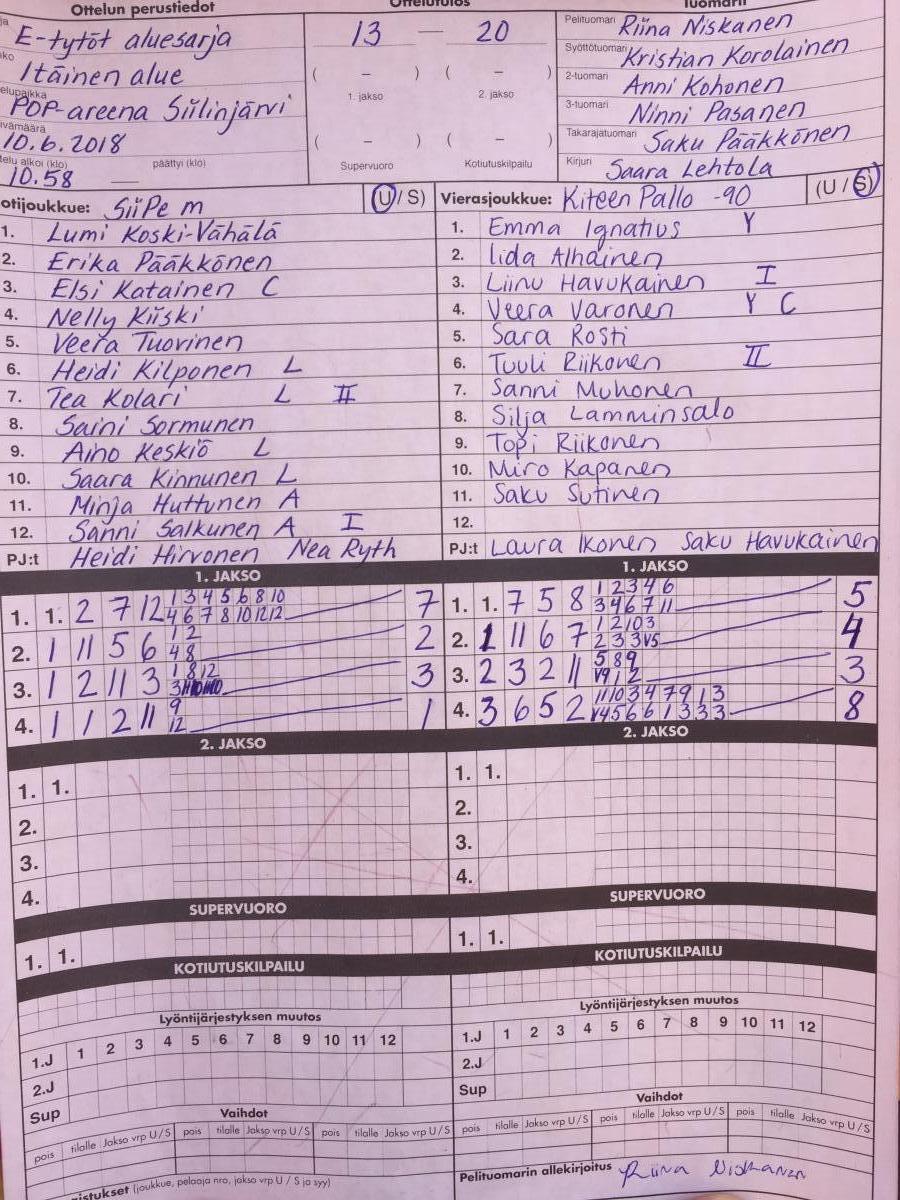 Ottelun perustiedot
E-tytöt aluesarja
Itäinen alue
POP-areena Siilinjärvi
10.6.2018
päättyi (klo)
10.58
Ottelutulos
13 — 20
( – ) ( – )
1. jakso 2. jakso
( – ) ( – )
Supervuoro Kotiutuskilpailu
Tuomarit
Pelituomari Riina Niskanen
Syöttötuomari Kristian Korolainen
2-tuomari Anni Kohonen
3-tuomari Ninni Pasanen
Takarajatuomari Saku Pääkkönen
Kirjuri Saara Lehtola
otijoukkue: SiiPe m (U/S)
1. Lumi Koski-Vähälä
2. Erika Pääkkönen
3. Elsi Katainen C
4. Nelly Kiiski
5. Veera Tuovinen
6. Heidi Kilponen L
7. Tea Kolari L II
8. Saini Sormunen
9. Aino Keskiö L
10. Saara Kinnunen L
11. Minja Huttunen A
12. Sanni Salkunen A I
PJ:t Heidi Hirvonen Nea Ryth
Vierasjoukkue: Kiteen Pallo -90 (U/S)
1. Emma Ignatius Y
2. Iida Alhainen
3. Liinu Havukainen I
4. Veera Varonen Y C
5. Sara Rosti
6. Tuuli Riikonen II
7. Sanni Muhonen
8. Silja Lamminsalo
9. Topi Riikonen
10. Miro Kapanen
11. Saku Sutinen
12.
PJ:t Laura Ikonen Saku Havukainen
1. JAKSO
1. 1. 2 7 12 1 3 4 5 6 8 10 7
4 6 7 8 10 12 12
2. 1 11 5 6 1 2 2
4 8
3. 1 2 11 3 1 8 12 3
4. 1 1 2 11 9 1
12
1. JAKSO
1. 1. 7 5 8 1 2 3 4 6 5
3 4 6 7 11
2. 1 11 6 7 1 2 10 3 4
2 3 3 V5
3. 2 3 2 11 5 8 9 3
V9 1 2
4. 3 6 5 2 11 10 3 4 7 9 1 3 8
V4 5 6 6 1 3 3 3
2. JAKSO
1. 1.
2.
3.
4.
2. JAKSO
1. 1.
2.
3.
4.
SUPERVUORO
1. 1.
SUPERVUORO
1. 1.
KOTIUTUSKILPAILU
KOTIUTUSKILPAILU
Lyöntijärjestyksen muutos
1.J 1 2 3 4 5 6 7 8 9 10 11 12
2.J
Sup
Lyöntijärjestyksen muutos
1.J 1 2 3 4 5 6 7 8 9 10 11 12
2.J
Sup
Vaihdot
pois tilalle Jakso vrp U/S pois tilalle Jakso vrp U/S pois tilalle Jakso vrp U/S
Vaihdot
pois tilalle Jakso vrp U/S pois tilalle Jakso vrp U/S pois tilalle Jakso vrp U/S
Pelituomarin allekirjoitus Riina Niskanen
(joukkue, pelaaja nro, jakso vrp U / S ja syy)